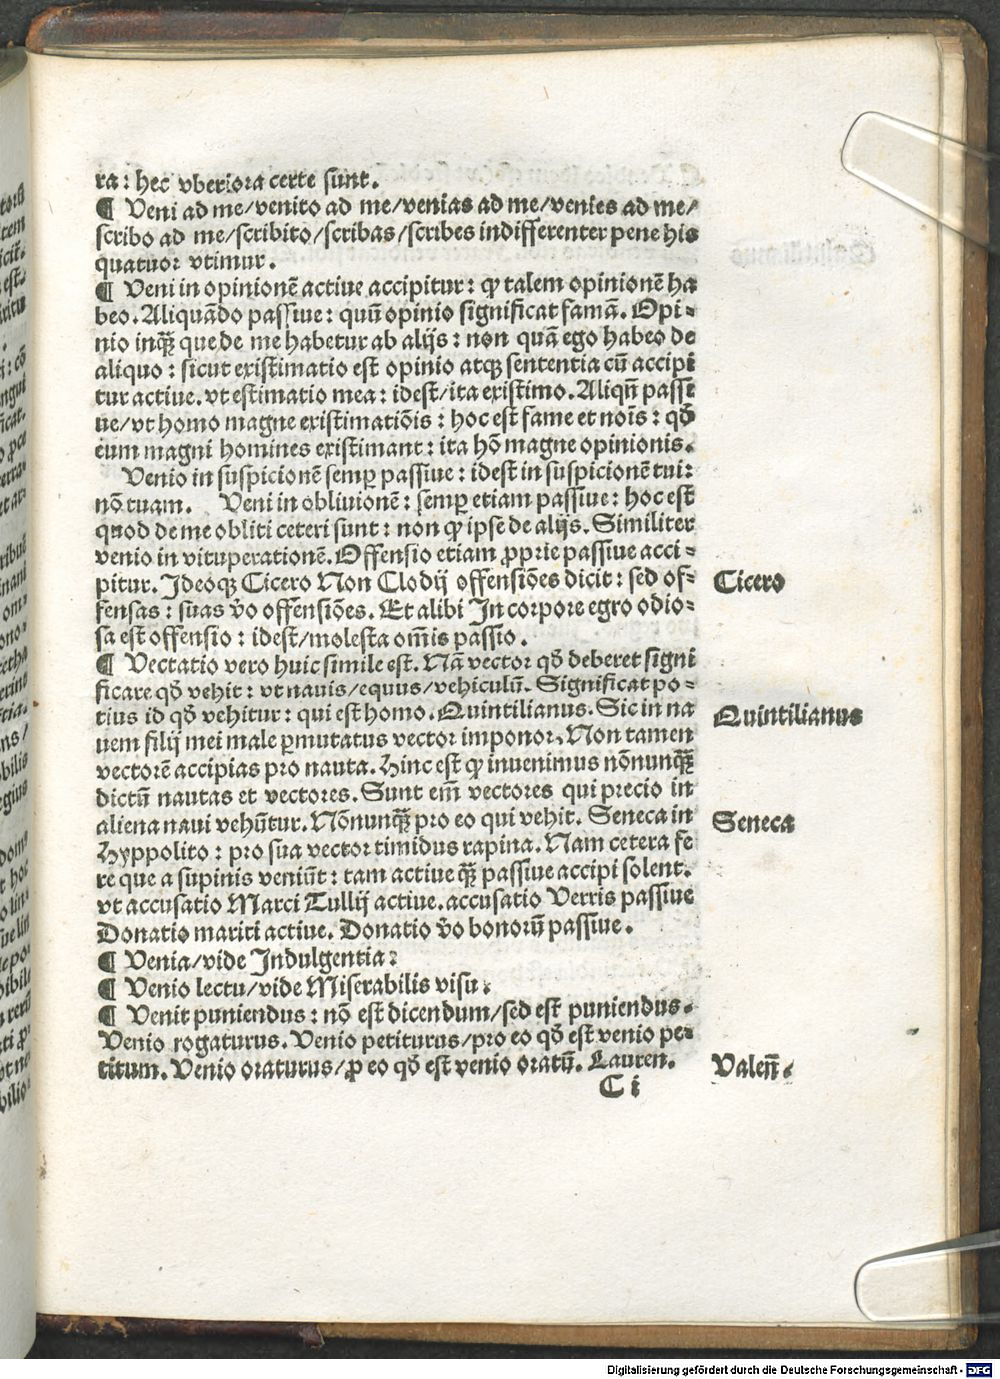 ra: hec vberiora certe sunt.
¶ Veni ad me/venito ad me/venias ad me/venies ad me/
scribo ad me/scribito/scribas/scribes indifferenter pene his
quatuor vtimur.
¶ Veni in opinionē actiue accipitur: ꝙ talem opinionē ha
beo. Aliquādo passiue: quū opinio significat famā. Opi-
nio inqꝫ que de me habetur ab alijs: non quā ego habeo de
aliquo: sicut existimatio est opinio atqꝫ sententia cū accipi
tur actiue. vt estimatio mea: idest/ita existimo. Aliqn̄ passi
ue/vt homo magne existimatiōis: hoc est fame et noīs: qō
eum magni homines existimant: ita hō magne opinionis.
Venio in suspicionē semꝑ passiue: idest in suspicionē tui:
nō tuam. Veni in obliuionē: semꝑ etiam passiue: hoc est
quod de me obliti ceteri sunt: non ꝙ ipse de alijs. Similiter
venio in vituperationē. Offensio etiam ꝓprie passiue acci-
pitur. Ideoqꝫ Cicero Non Clodij offensiōes dicit: sed of-
fensas: suas v̄o offensiōes. Et alibi In corpore egro odio-
sa est offensio: idest/molesta om̄is passio.
¶ Vectatio vero huic simile est. Nā vector qō deberet signi
ficare qō vehit: vt nauis/equus/vehiculū. Significat po-
tius id qō vehitur: qui est homo. Quintilianus. Sic in na
uem filij mei male ꝑmutatus vector imponor. Non tamen
vectorē accipias pro nauta. Hinc est ꝙ inuenimus nōnunqꝫ
dictū nautas et vectores. Sunt em̄ vectores qui precio in
aliena naui vehūtur. Nōnunqꝫ pro eo qui vehit. Seneca in
Hyppolito: pro sua vector timidus rapina. Nam cetera fe
re que a supinis veniūt: tam actiue qꝫ passiue accipi solent.
vt accusatio Marci Tullij actiue. accusatio Verris passiue
Donatio mariti actiue. Donatio v̄o bonorū passiue.
¶ Venia/vide Indulgentia:
¶ Venio lectu/vide Miserabilis visu:
¶ Venit puniendus: nō est dicendum/sed est puniendus.
Venio rogaturus. Venio petiturus/pro eo qō est venio pe-
titum. Venio oraturus/ꝓ eo qō est venio oratū. Lauren.
C i
Cicero
Quintilianus
Seneca
Valen̄.
Digitalisierung gefördert durch die Deutsche Forschungsgemeinschaft - DFG